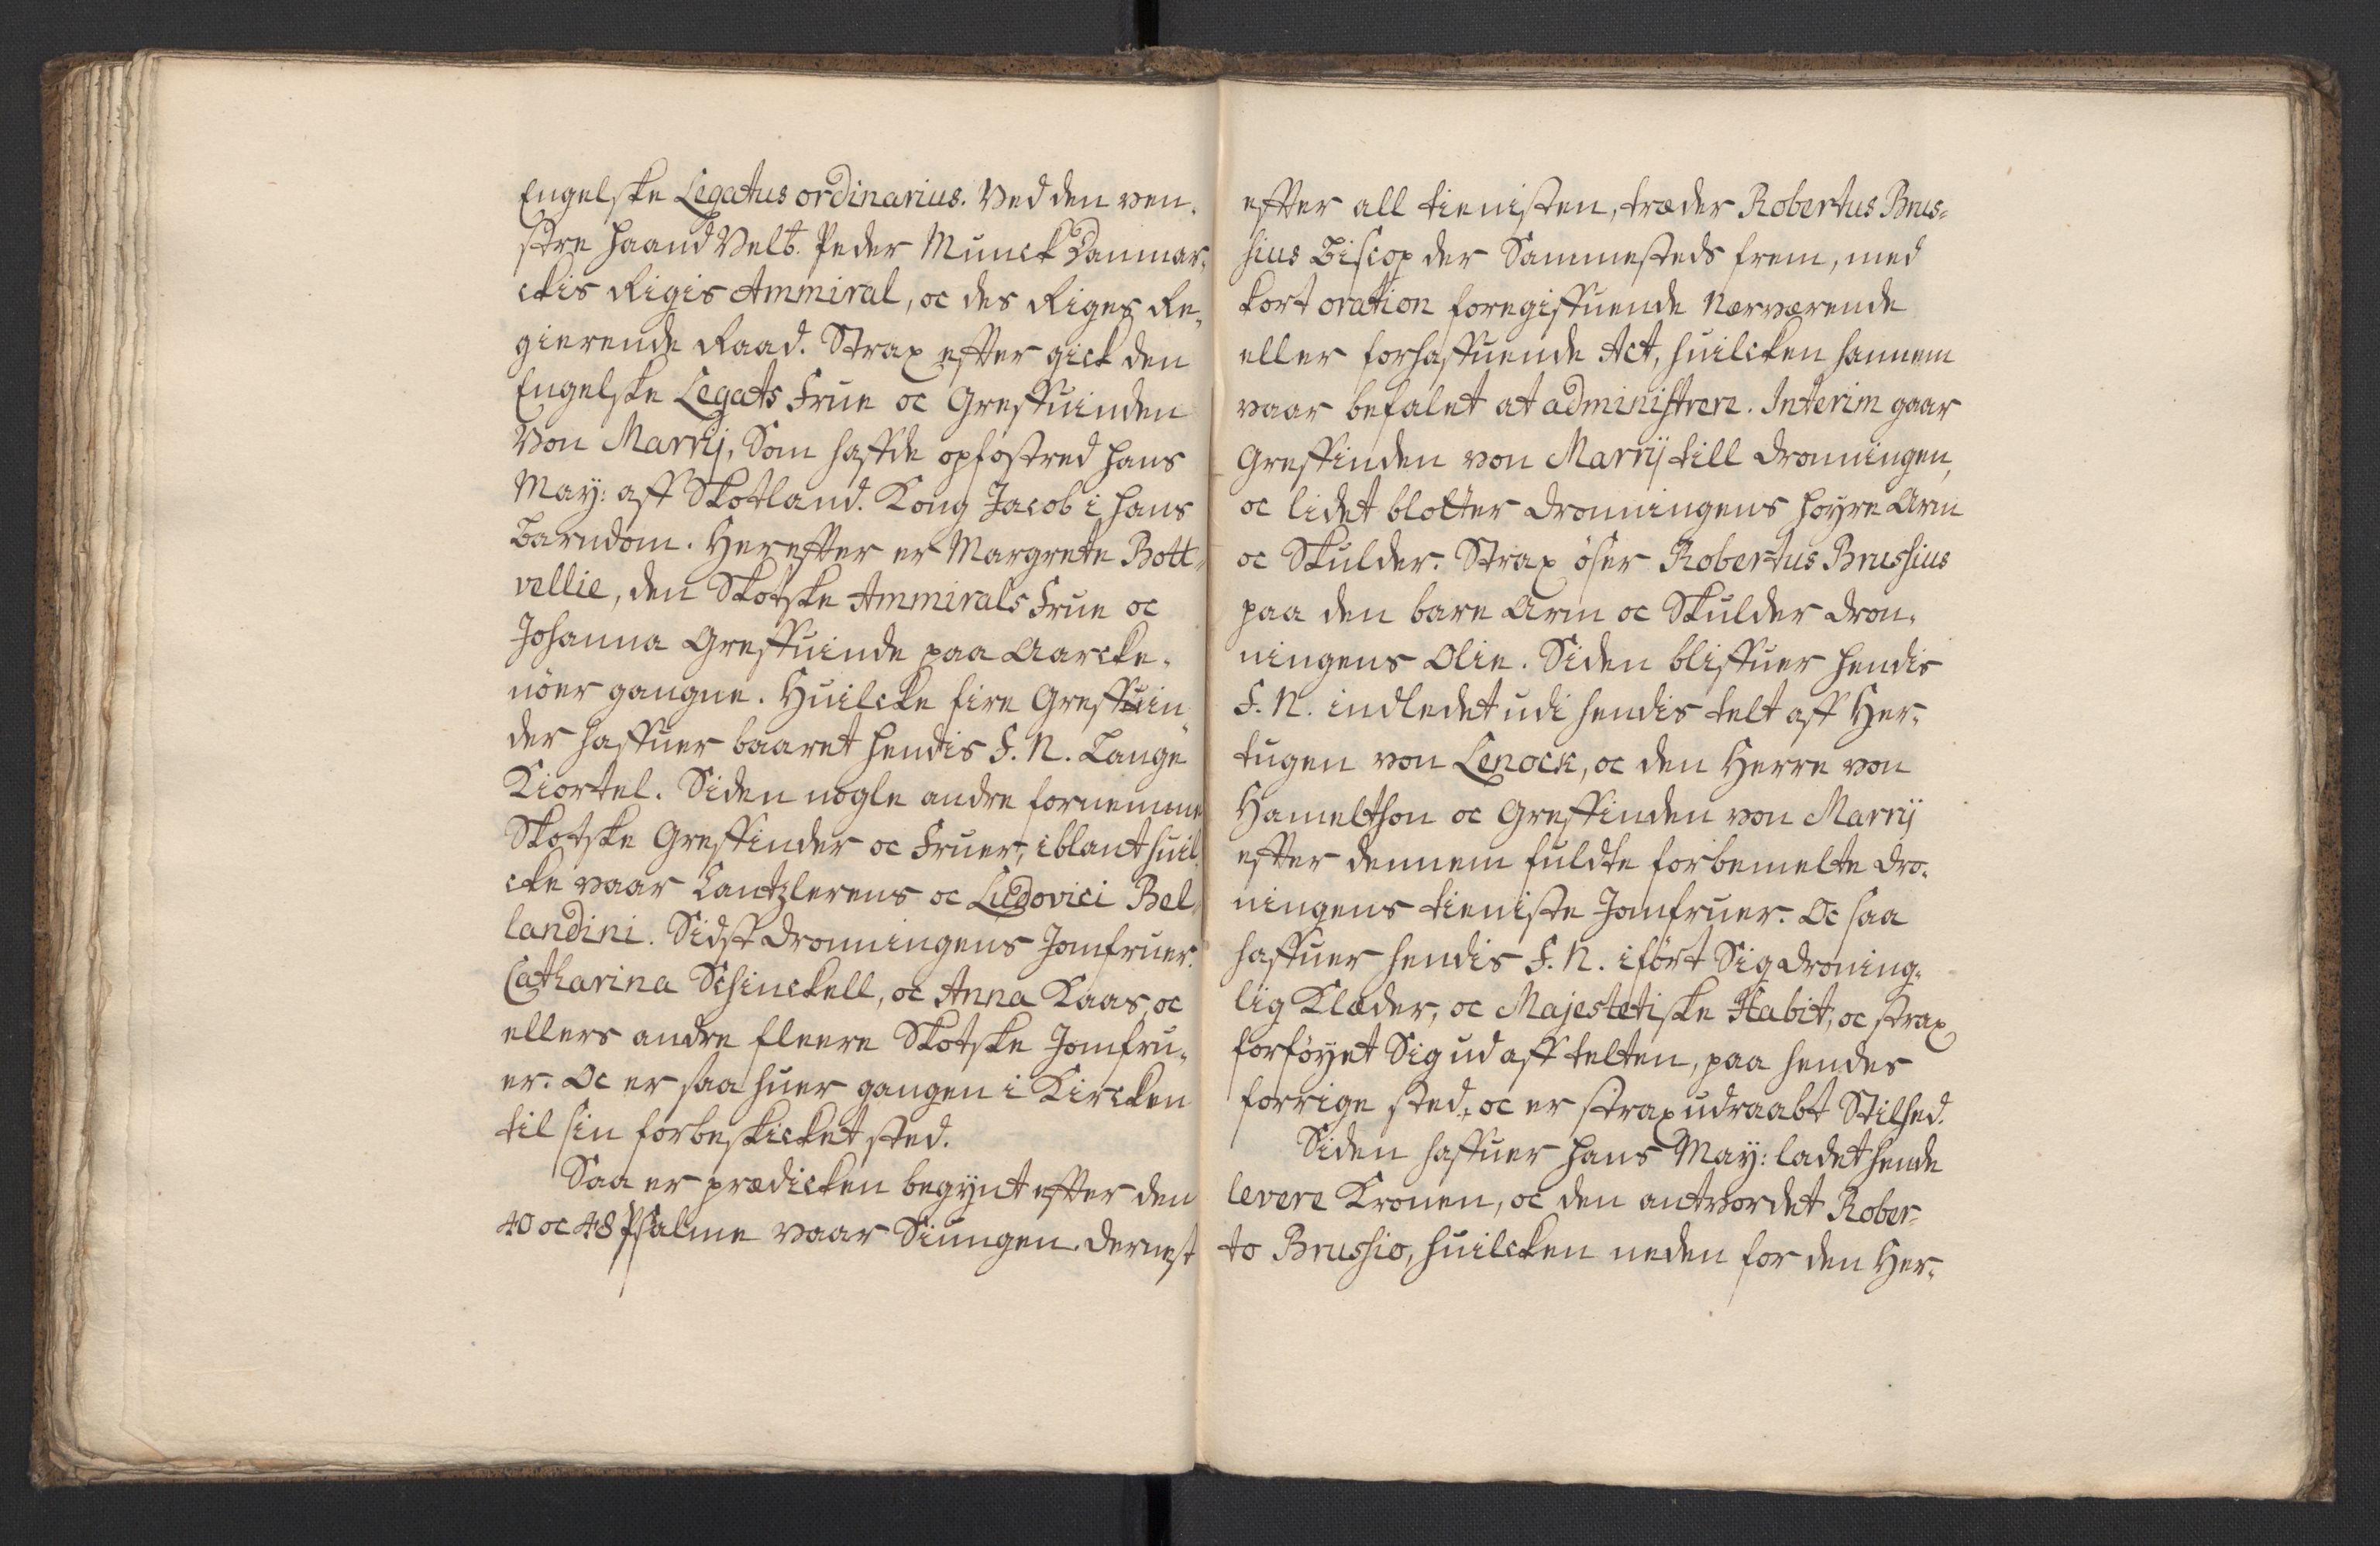 Engelske Legatus ordinarius. Ved den ven-
stre Haand Velb. Peder Munck Danmar-
ckis Rigis Ammiral, oc des Riges Re-
gierende Raad. Strax effter gick den
Engelske Legats Frue oc Greffuinden
Von Marrij, Som haffde opfostred Hans
May: aff Skotland. Kong Jacob i hans
Barndom. Hereffter er Margrete Bott-
vellie, den Skotske Ammirals Frue oc
Johanna Greffuinde paa Aarcke-
nöer gangne. Huilcke fire Greffuin-
der haffuer baaret Hendis F. N. Lange
Kiortel. Siden nogle andre fornemme
Skotske Greffinder oc Fruer, iblant huil-
cke vaar Cantzlerens oc Ludovici Bel-
landini. Sidst Dronningens Jomfruer.
Catharina Schinckell, oc Anna Kaas, oc
ellers andre fleere Skotske Jomfru-
er. Oc er saa huer gangen i Kircken
til sin forbeskicket sted.
Saa er prædicken begynt effter den
40 oc 48 Psalme vaar Siungen. dernest
effter all tienisten, træder Robertus Brus-
sius Biscop der Sammesteds frem, med
kort oration foregiffuende Nærværende
eller forhaffuende Act, huilcken hannem
vaar befalet at administrere. Interim gaar
Greffinden von Marrij till Dronningen,
oc lidet blotter Dronningens høyre Arm
oc Skulder. Strax öser Robertus Brussius
paa den bare Arm oc Skulder Dron-
ningens Olie. Siden bliffuer hendis
F. N. indledet udi hendis telt aff Her-
tugen von Lenock, oc den Herre von
Hamelthon oc Greffinden von Marrij
effter dennem fuldte forbemelte Dro-
ningens tieniste Jomfruer. Oc saa
haffuer hendis F. N. iført Sig droning-
lig Klæder, oc Majestetiske Habit, oc strax
forföyet Sig ud aff telten, paa hendes
forrige sted, oc er strax udraabt Stilhed.
Siden haffuer Hans May: ladet hende
levere Kronen, oc den antvordet Rober-
to Brussio, huilcken neden for den Her-